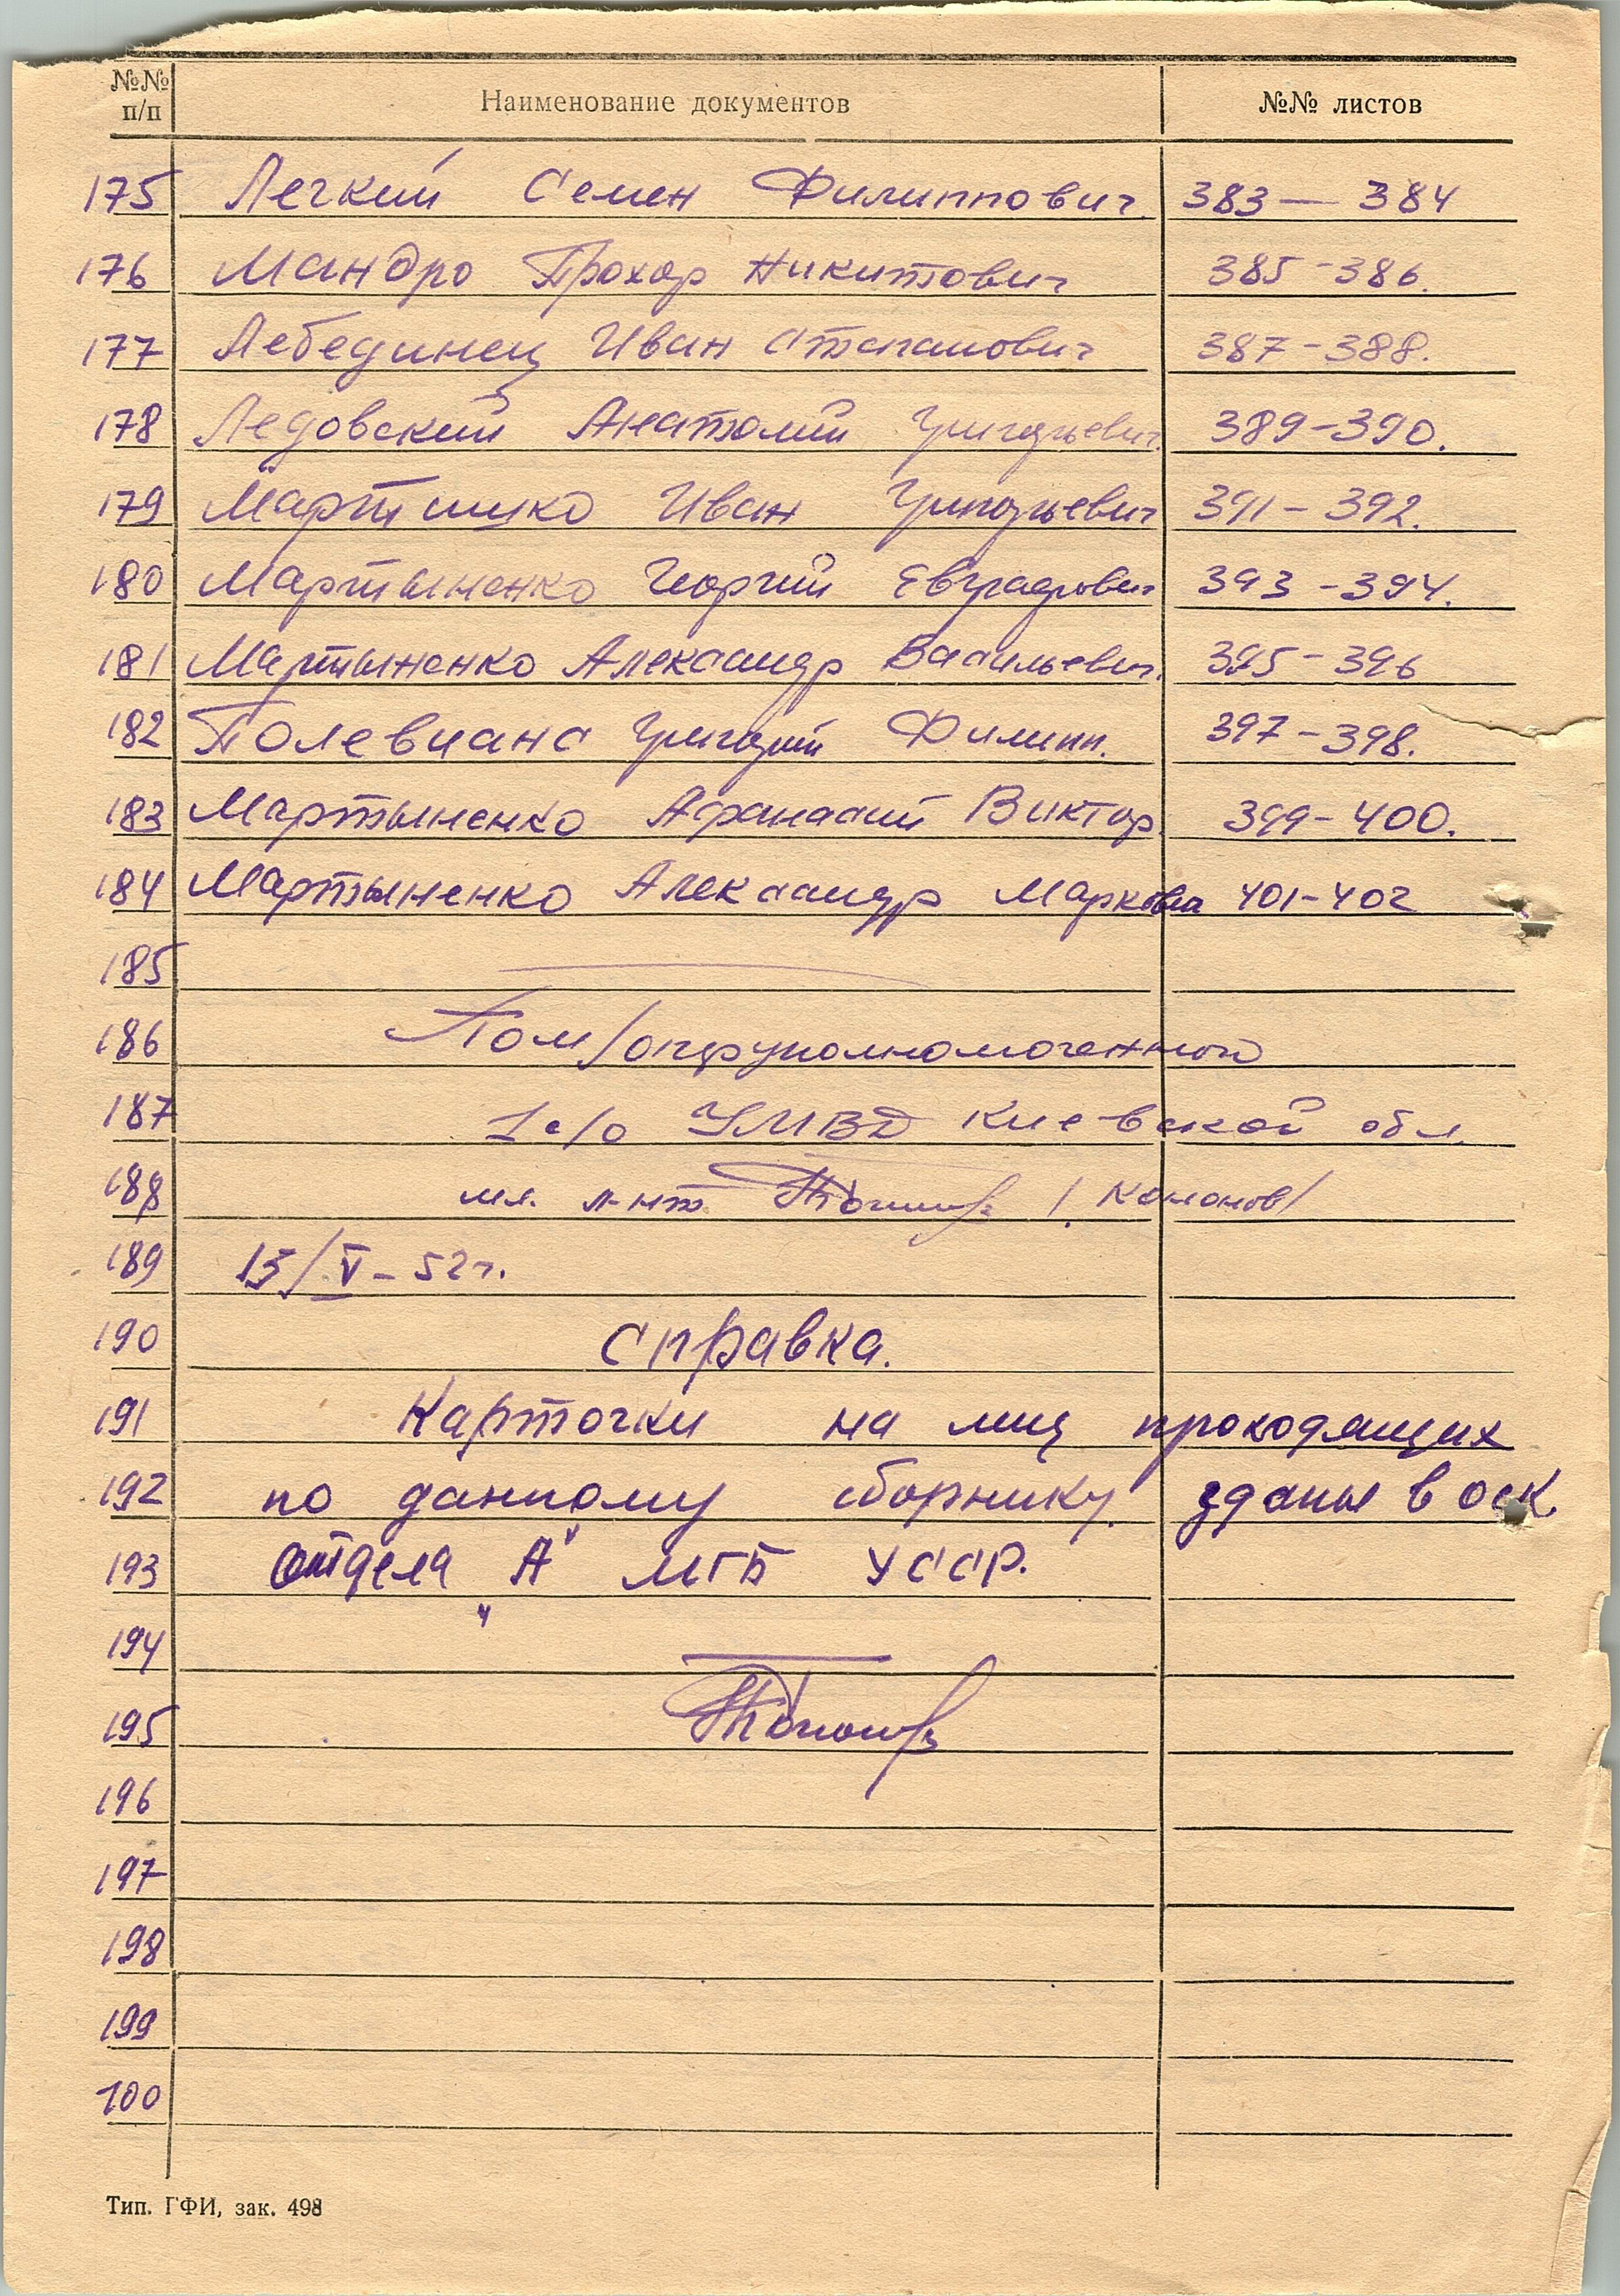 №№ п/п Наименование документов №№ листов
175 Легкий Семен Филиппович 383 — 384
176 Мандро Прохор Никитович 385 - 386.
177 Лебединец Иван Степанович 387 - 388.
178 Ледовский Анатолий Григорьевич 389 - 390.
179 Иван Григорьевич 391 - 392.
180 Мартыненко Георгий Евграфович 393 - 394.
181 Мартыненко Александр Васильевич 395 - 396
182 Григорий Филипп. 397 - 398.
183 Мартыненко Афанасий Виктор. 399 - 400.
184 Мартыненко Александр Маркович 401 - 402
185
186 Пом/оперуполномоченный
187 1 с/о УМВД Киевской обл.
188 мл. л-нт /Кононов/
189 15/V - 52 г.
190 Справка.
191 Карточки на лиц проходящих
192 по данному сборнику зданы в оск.
193 отдела "А" МГБ УССР.
194
195
196
197
198
199
100
Тип. ГФИ, зак. 498